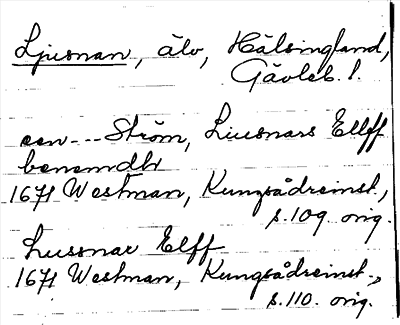 Ljusnan, älv, Hälsingland,
Gävleb. l.
een --- Ström, Liusnars Ellff
benemdhr
1671 Westman, Kungsådreinst.,
s. 109 orig.
Lussnar Elff
1671 Westman, Kungsådreinst.,
s. 110. orig.